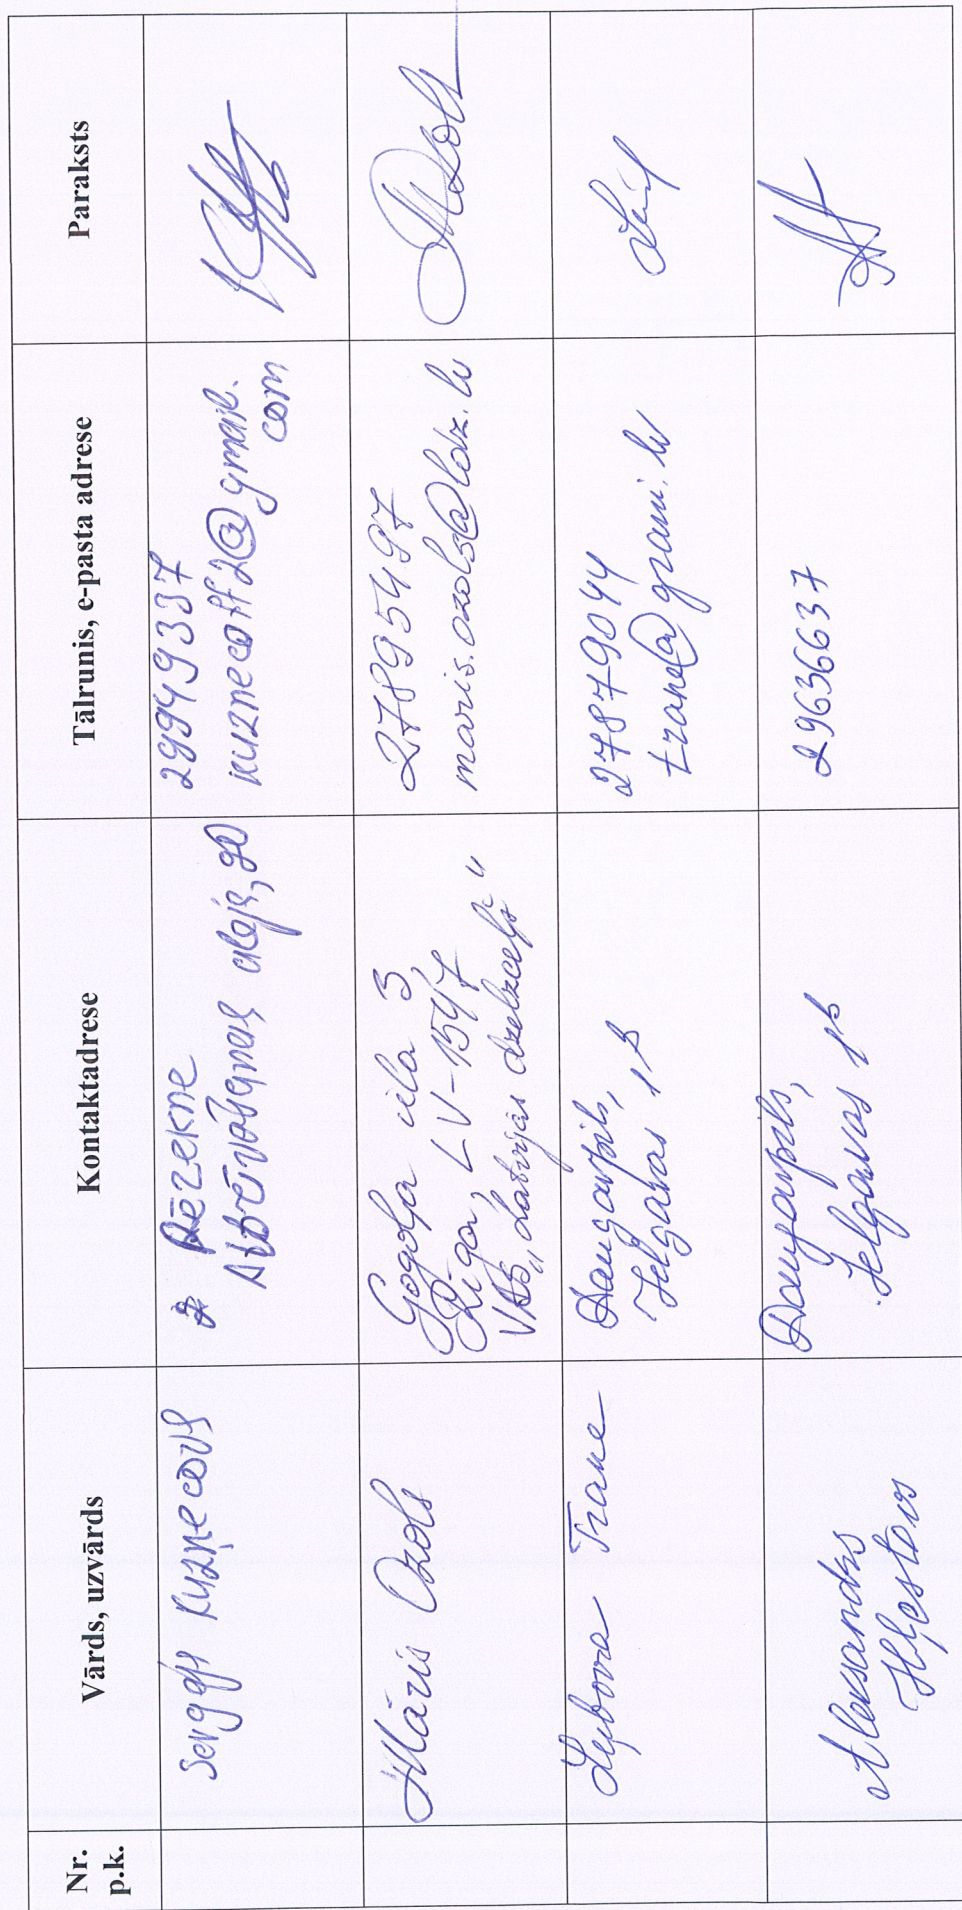 Nr.
p.k.
Vārds, uzvārds
Kontaktadrese
Tālrunis, e-pasta adrese
Paraksts
Sergejs Kuzņecovs
Rēzekne
Atbrīvošanas aleja, 90
29949337
kuznecoff2@gmail.
com
Māris Ozols
Gogoļa iela 3,
Rīga, LV-1547
VAS „Latvijas dzelzceļš"
27895497
maris.ozols@ldz.lv
Ozols
Ļubova Trane
Daugavpils,
Jelgavas 1b
27879044
trane@grani.lv
Aleksandrs
Daugavpils,
Jelgavas 1b
29636637